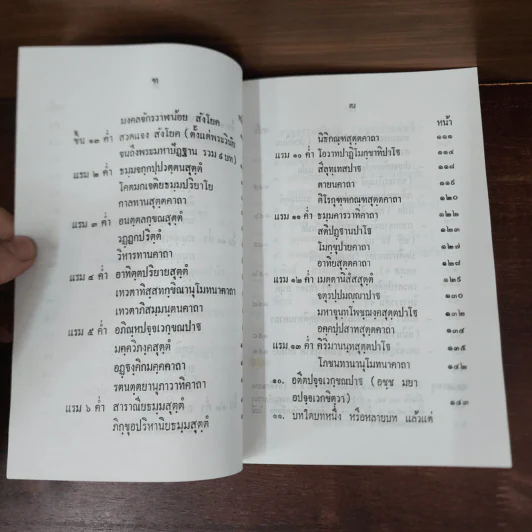 ฑ
มงคลจักรวาฬน้อย สังโยค
ขึ้น ๑๓ ค่ำ สวดแจง สังโยค (ตั้งแต่พระวินัย
จนถึงพระมหาปัฏฐาน รวม ๘ บท)
แรม ๒ ค่ำ ธมฺมจกฺกปฺปวตฺตนสุตฺตํ
โคตมกเจติยธมฺมปริยาโย
กาลทานสุตฺตคาถา
แรม ๓ ค่ำ อนตฺตลกฺขณสุตฺตํ
วฏฺฏกปริตฺตํ
วิหารทานคาถา
แรม ๔ ค่ำ อาทิตฺตปริยายสุตฺตํ
เทวตาทิสฺสทกฺขิณานุโมทนาคาถา
เทวตาภิสมฺมนฺตนคาถา
แรม ๕ ค่ำ อภิณฺหปจฺจเวกฺขณปาฐ
มคฺควิภงฺคสุตฺตํ
อฏฺฐงฺคิกมคฺคคาถา
รตนตฺตยานุภาวาทิคาถา
แรม ๖ ค่ำ สาราณียธมฺมสุตฺตํ
ภิกฺขุอปริหานิยธมฺมสุตฺตํ
หน้า
นิธิกณฺฑสุตฺตคาถา ๑๑๑
แรม ๑๐ ค่ำ โอวาทปาฏิโมกฺขาทิปาโฐ ๑๑๔
สีลุทฺเทสปาโฐ ๑๑๘
ตายนคาถา ๑๑๙
ติโรกุฑฺฑกณฺฑสุตฺตคาถา ๑๒๐
แรม ๑๑ ค่ำ ธมฺมคารวาทิคาถา ๑๒๒
สติปฏฺฐานปาโฐ ๑๒๓
โมกฺขุปายคาถา ๑๒๗
อาทิยสุตฺตคาถา ๑๒๘
แรม ๑๒ ค่ำ เมตฺตานิสํสสุตฺตํ ๑๒๙
จตุรปฺปมญฺญาปาโฐ ๑๓๐
มหาจุนฺทโพชฺฌงฺคสุตฺตปาโฐ ๑๓๒
อคฺคปฺปสาทสุตฺตคาถา ๑๓๔
แรม ๑๓ ค่ำ คิริมานนฺทสุตฺตปาโฐ ๑๓๕
โภชนทานานุโมทนาคาถา ๑๔๒
๑๐. อตีตปจฺจเวกฺขณปาฐ (อชฺช มยา
อปจฺจเวกฺขิตฺวา) ๑๔๓
๑๑. บทใดบทหนึ่ง หรือหลายบท แล้วแต่